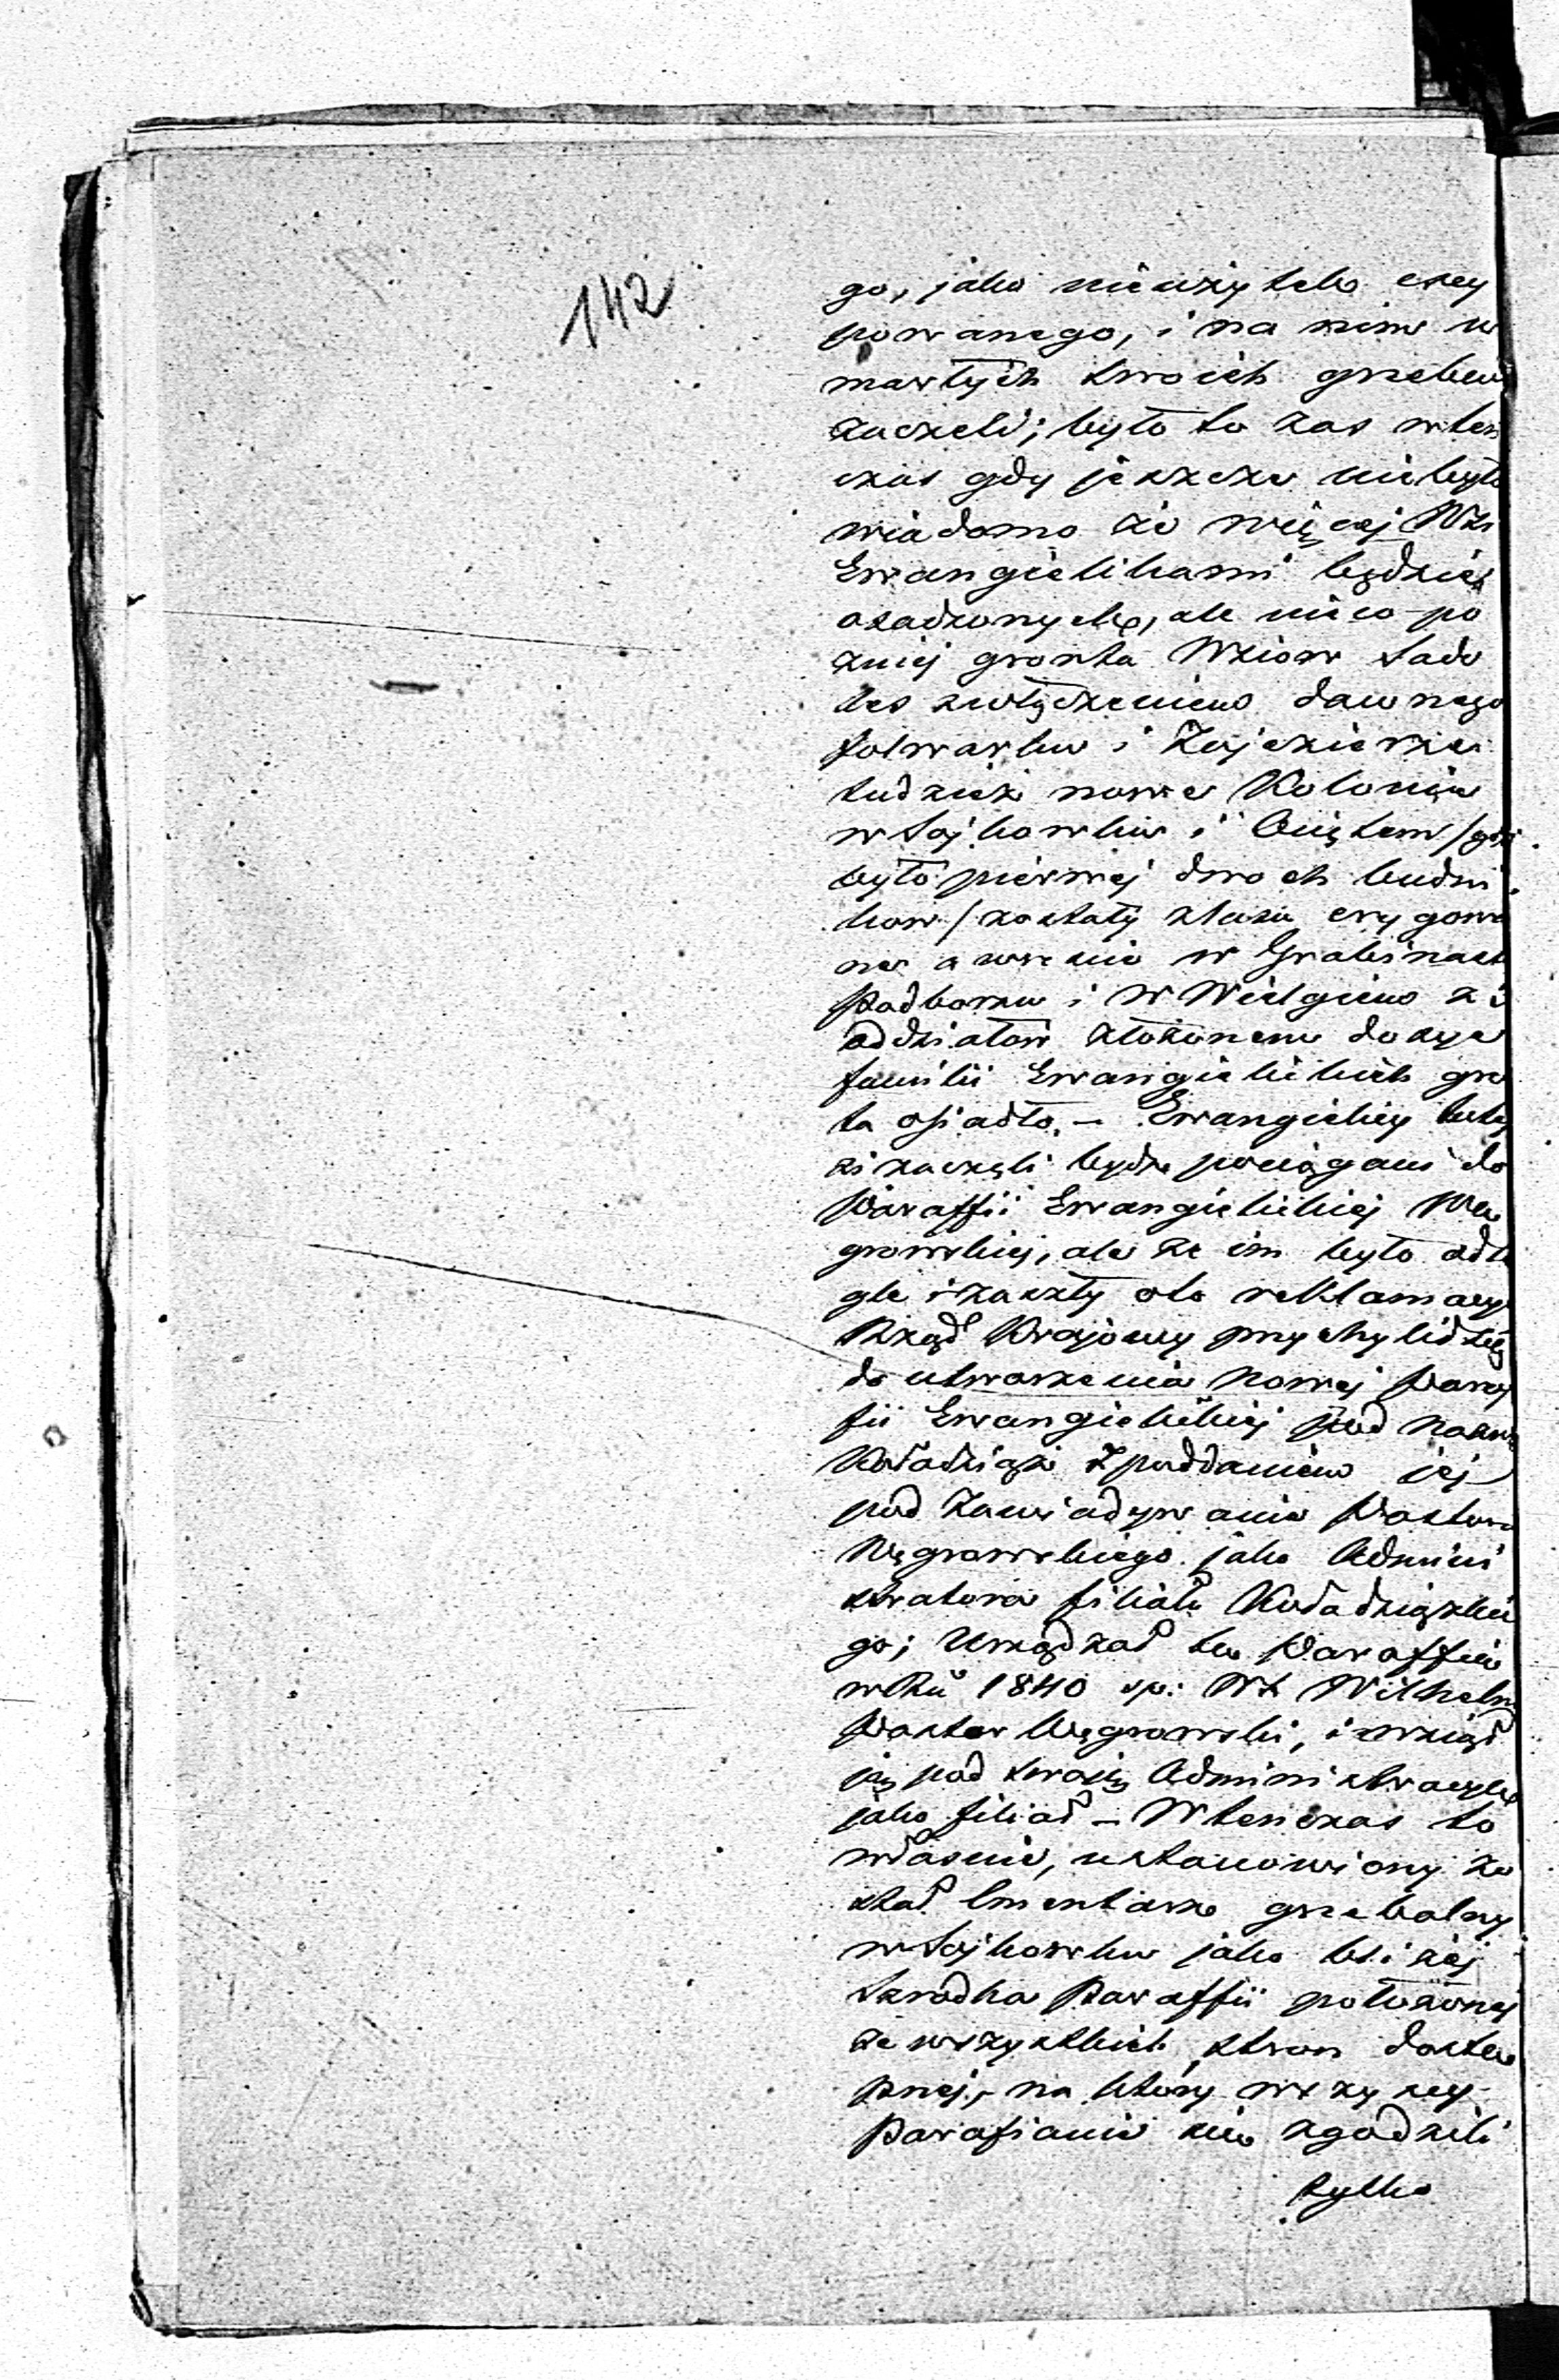 142
go, jako nieużytek czey
powanego, i na nim u
marłych swoich grzebać
zaczeli; było to zas wten
czas gdy jeszcze niebyło
wiadomo że więcej Wsi
Ewangielikami będzie
osadzonych, ale nieco po
zniej gronta Wsiow Sado
les
folwarku i Zajezierza
tudzież nowe Kolonie
w Sojkowku i
było pierwej dwoch budni
kow / zostały
ne a w Grabinach
Podborzu i w Wielgiem z
oddziałow złożonem dosyc
familii Ewangielickich gron
ta osiadło. – Ewangielicy tutej
si zaczęli bydź pociągani do
Paraffii Ewangielickiej We
growskiej, ale że im było odle
gle i zaszły o to reklamacye
Rząd Krajowy przychylił się
do utworzenia nowej Paraf
fii Ewangielickiej pod nazwą
Kołodziąż z poddaniem jej
pod zawiadywanie Pastora
Węgrowskiego jako Admini
stratora filiału Kołodziązkie
go; Urządzał te Paraffie
w Rū 1840 sp: WX Wilhelm
Pastor Węgrowski, i wziął
ją pod swoię Administracyę
jako filiał – Wtenczas to
właśnie, ustanowiony zo
stał Cmentarz grzebalny
w Sojkowku jako bliżej
srodka Paraffii położonej
ze wszystkich stron dostę
pnej, – na ktory wszyscy
Parafianie sie zgodzili
tylko